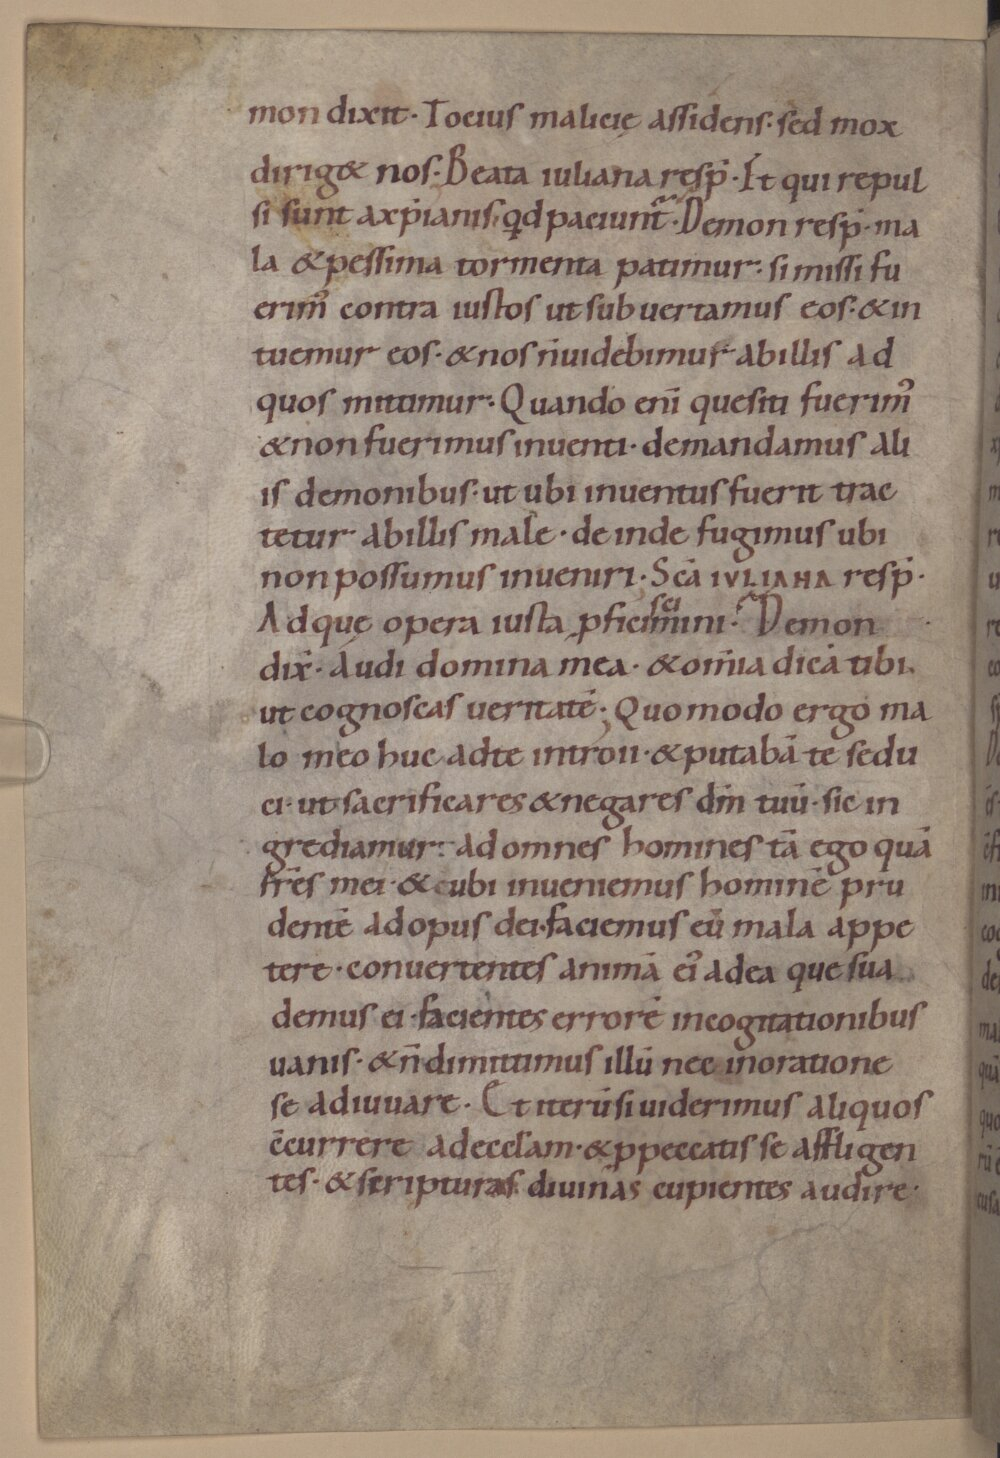 mon dixit· Tocius malicie assidens· sed mox
dirig& nos· Beata iuliana resp̄· Et qui repul
si sunt axp̄ianis· qd paciunt᷑· Demon resp̄· ma
la &pessima tormenta patimur· si missi fu
erim᷒ contra iustos ut subuertamus eos· &in
tuemur eos· &nos n̄ uidebimur abillis ad
quos mittimur· Quando eni̅ quesiti fuerim᷒
&non fuerimus inuenti· demandamus ali
is demonibus· ut ubi inuentus fuerit trac
tetur abillis male· deinde fugimus ubi
non possumus inueniri· Sc̄a IVLIANA resp̄·
Ad quę opera iusta ꝓficiscimini· Demon
dix̄· Audi domina mea· &om̄ia dicā tibi
ut cognoscas ueritatē· Quomodo ergo ma
lo meo huc adte introii· &putabā te sedu
ci· ut sacrificares &negares dm̄ tuū· sic in
grediamur· ad omnes homines tā ego quā
fr̄es mei· & ubi inueniemus hominē pru
dentē ad opus dei· faciemus eū mala appe
tere· conuertentes animā ei᷒ adea que sua
demus ei· facientes errorē incogitationibus
uanis· &n̄ dimittimus illū nec inoratione
se adiuuare· Et iterū si uiderimus aliquos
c̄currere adeccl̄am· &ꝓpeccatis se affligen
tes· &scripturas diuinas cupientes audire·